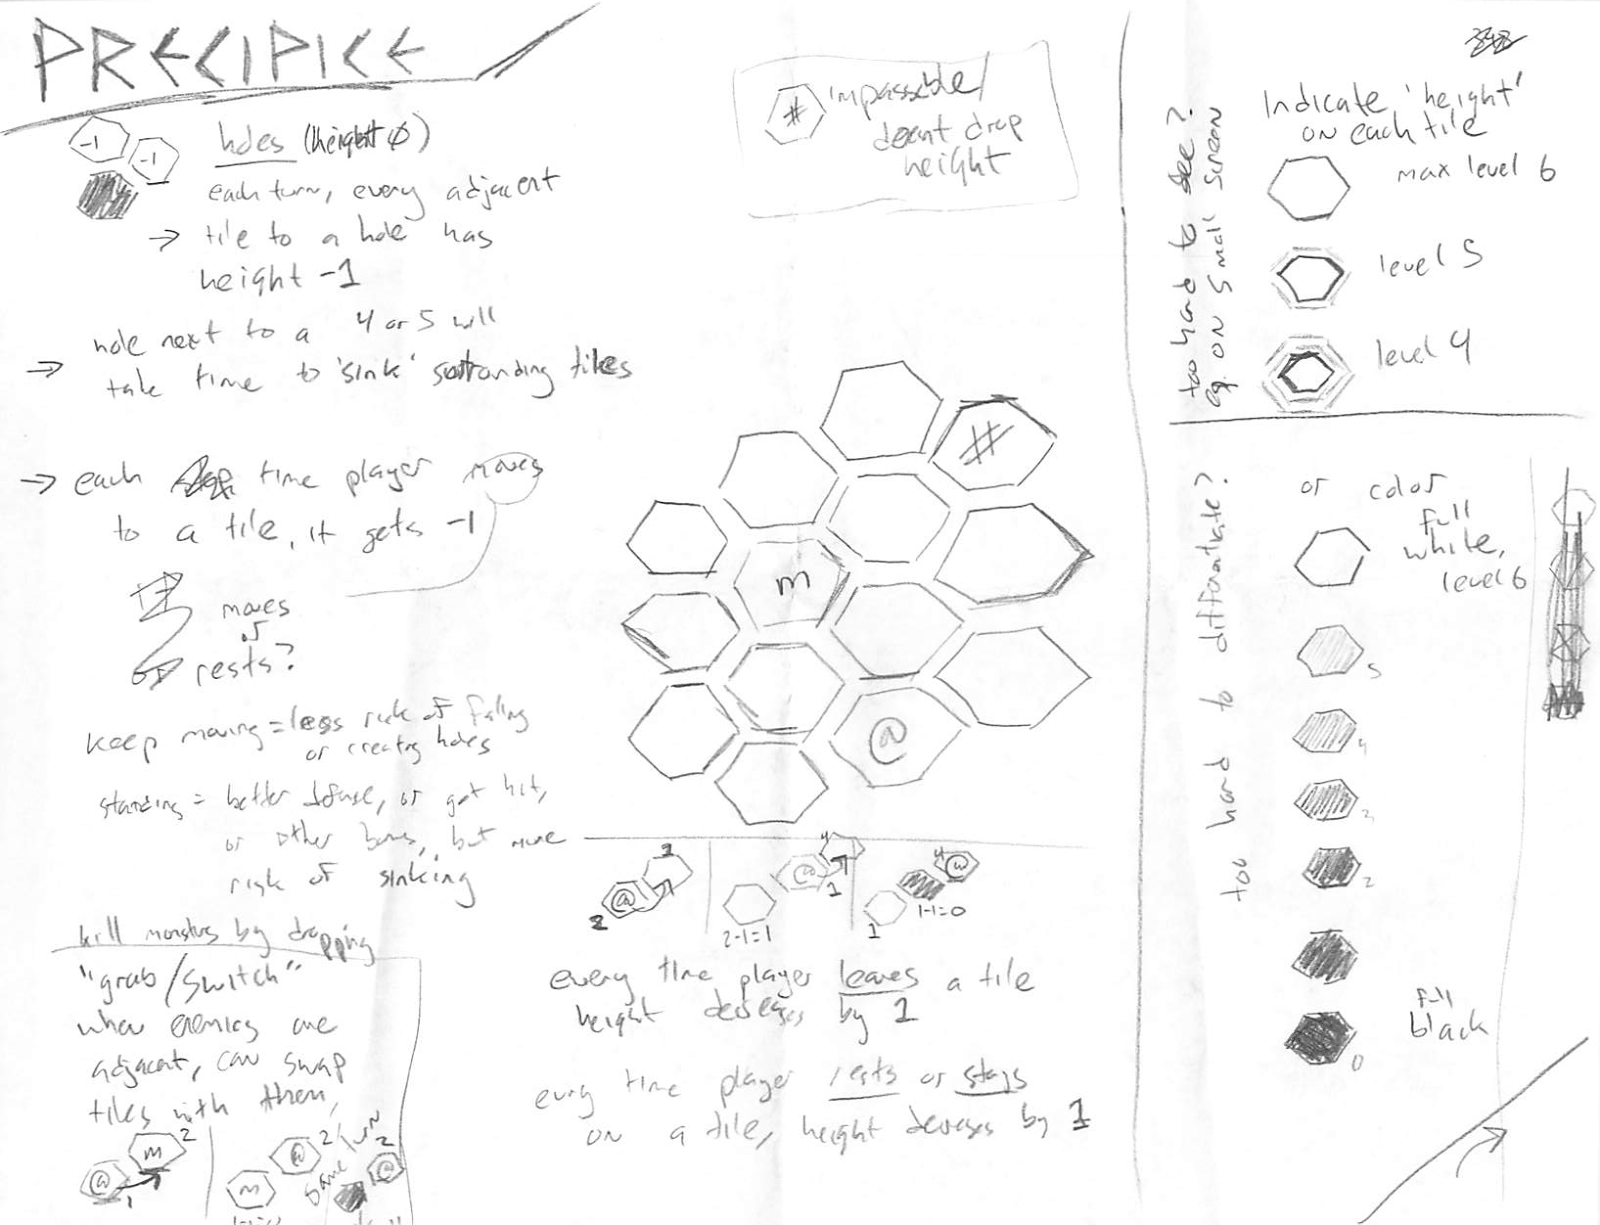 PRECIPICE
-1
-1
holes (height 0)
each turn, every adjacent
→ tile to a hole has
height -1
→ hole next to a 4 or 5 will
take time to 'sink' surrounding tiles
→ each time player moves
to a tile, it gets -1
moves
or
rests?
keep moving = less risk of falling
or creating holes
standing = better defense, or get hit,
or other bonus, but more
risk of sinking
kill monsters by dropping
"grab/switch"
when enemies are
adjacent, can swap
tiles with them,
@
1
m
2
m
@
2
same turn
2
@
# impassible/
doesnt drop
height
#
m
@
2
@
3
2-1=1
@
1
4
1
1-1=0
4
@
every time player leaves a tile
height decreases by 1
every time player rests or stays
on a tile, height decreases by 1
too hard to see?
eg. on small screen
Indicate 'height'
on each tile
max level 6
level 5
level 4
too hard to differentiate?
or color
full
white,
level 6
5
4
3
2
full
black
0